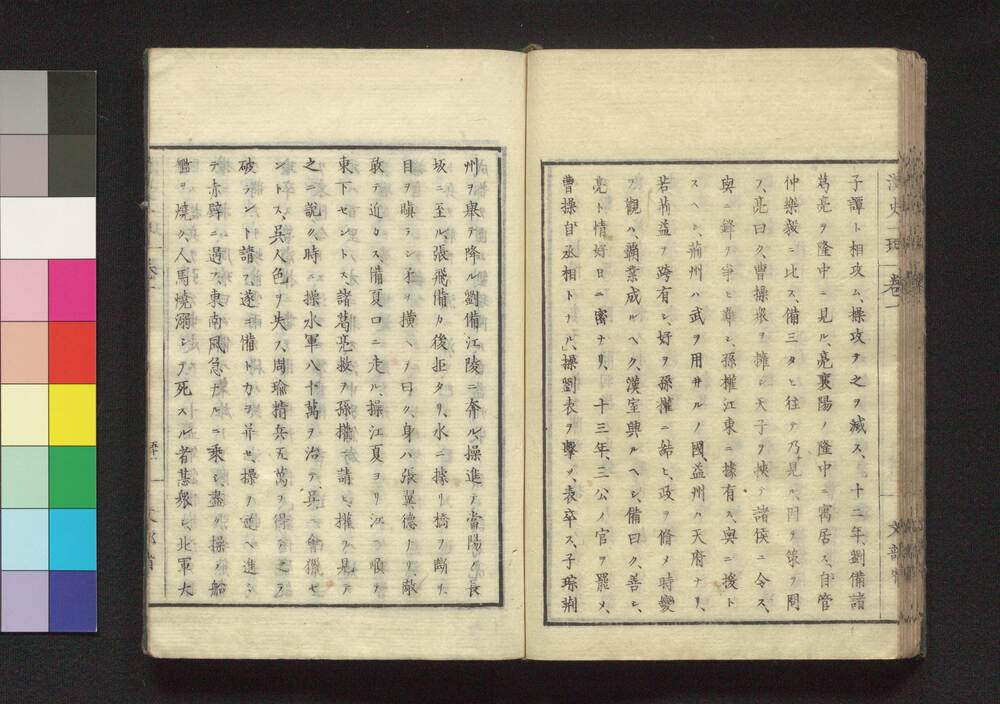 子譚ト相攻ム、操攻テ之ヲ滅ス、十二年、劉備諸
葛亮ヲ隆中ニ見ル、亮襄陽ノ隆中ニ寓居ス、自管
仲樂毅ニ比ス、備三タヒ往テ乃見ル、因テ策ヲ問
フ、亮曰ク、曹操衆ヲ擁シ天子ヲ挾テ諸侯ニ令ス、
與ニ鋒ヲ爭ヒ難シ、孫權江東ニ據有ス、與ニ援ト
スヘシ、荊州ハ武ヲ用井ルノ國、益州ハ天府ナリ、
若荊益ヲ跨有シ、好ヲ孫權ニ結ヒ、政ヲ脩メ時變
ヲ觀ハ、霸業成ルヘク、漢室興ルヘシ、備曰ク、善シ、
亮ト情好日ニ密ナリ、十三年、三公ノ官ヲ罷メ、
曹操自丞相トナル、操劉表ヲ擊ツ、表卒ス、子琮荊
州ヲ舉テ降ル、劉備江陵ニ奔ル、操進テ當陽ノ長
坂ニ至ル、張飛備カ後拒タリ、水ニ據リ橋ヲ斷チ、
目ヲ瞋ラシ矛ヲ橫ヘテ曰ク、身ハ張翼德ナリ、敵
敢テ近カス、備夏口ニ走ル、操江夏ヨリ江ニ順テ
東下セントス、諸葛亮救ヲ孫權ニ請ヒ、權ヲ見テ
之ニ說ク、時ニ操水軍八十萬ヲ治テ、吳ニ會獵セ
ントス、吳人色ヲ失ス、周瑜精兵五萬ヲ得テ之ヲ
破ラント請フ、遂ニ備ト力ヲ幷セ、操ヲ逆ヘ進ン
テ赤壁ニ遇フ、東南風急ナルニ乘シ、盡ク操ノ船
艦ヲ燒ク、人馬燒溺シテ死スル者甚衆シ、北軍大